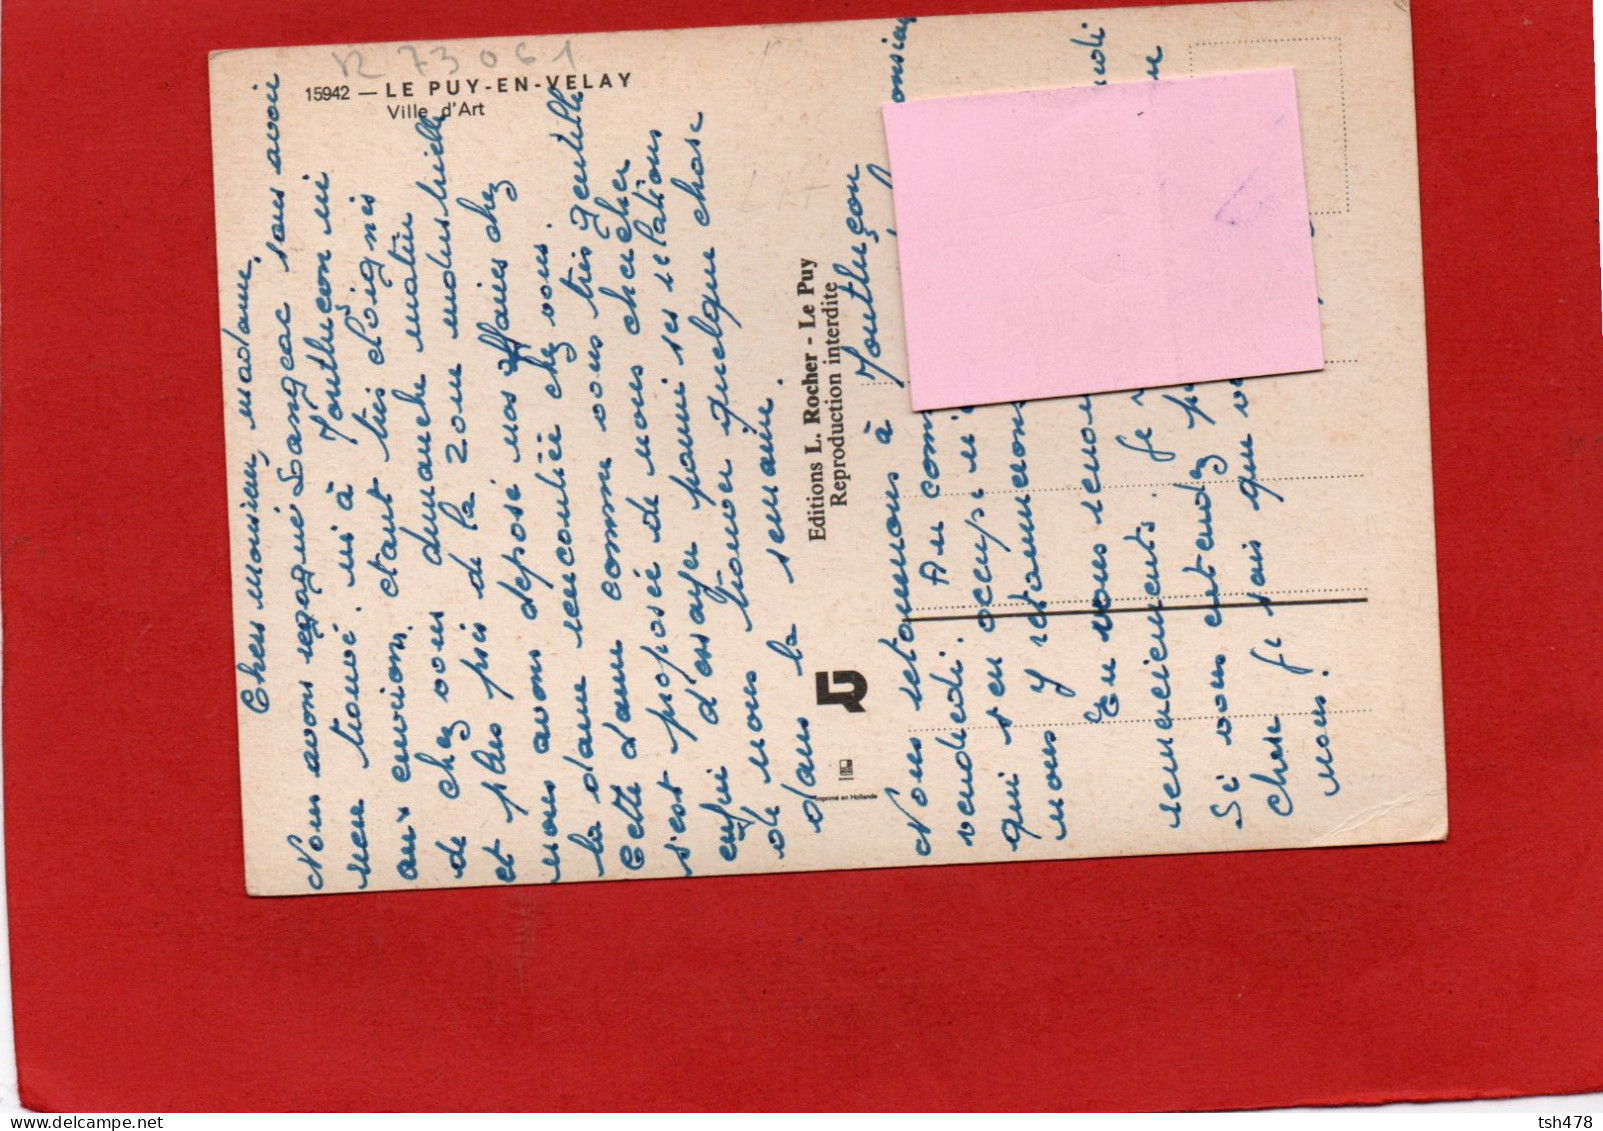 R 73061
15942 — LE PUY-EN-VELAY
Ville d'Art
Chers monsieur, madame,
Nous avons regagné Langeac sans avoir
rien trouvé. ni à Montluçon ni
aux environs. étant très éloignés
de chez vous dimanche matin
et plus près de la zone industrielle
nous avons déposé nos affaires chez
la dame rencontrée chez vous.
Cette dame comme vous très gentille
s'est proposée de nous chercher
enfin d'essayer parmi ses relations
de nous trouver quelque chose
dans la semaine.
Editions L. Rocher - Le Puy
Reproduction interdite
Imprimé en Hollande
Nous retournons à Montluçon
vendredi. Au com
qui s'en occupe
nous y retournerons
En vous renou
remerciements. Je
Si vous entendez
chose je sais que
nous!
tsh478